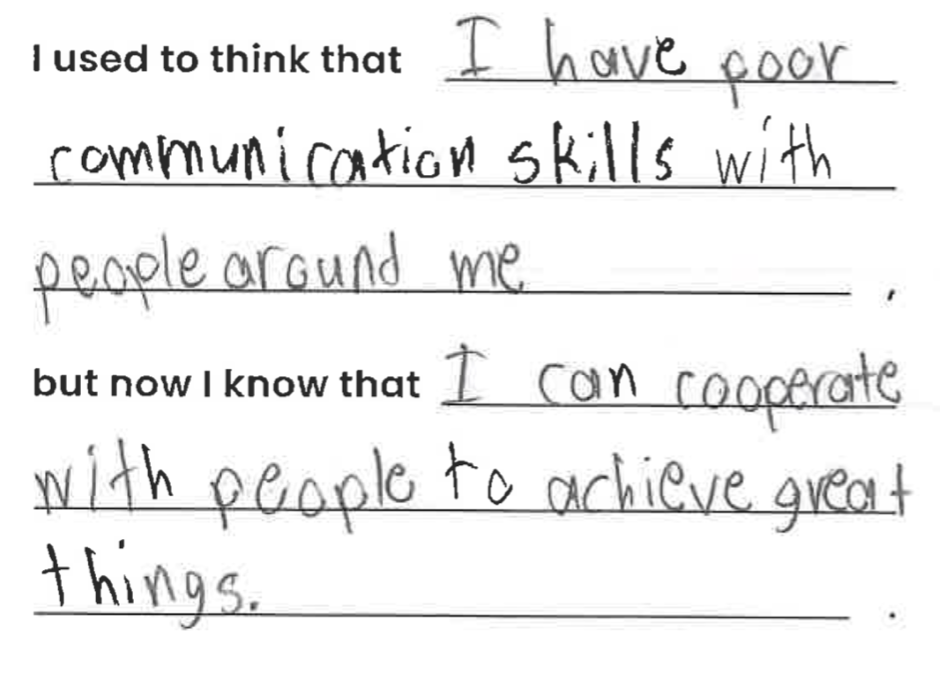 I used to think that I have poor
communication skills with
people around me ,
but now I know that I can cooperate
with people to achieve great
things. .